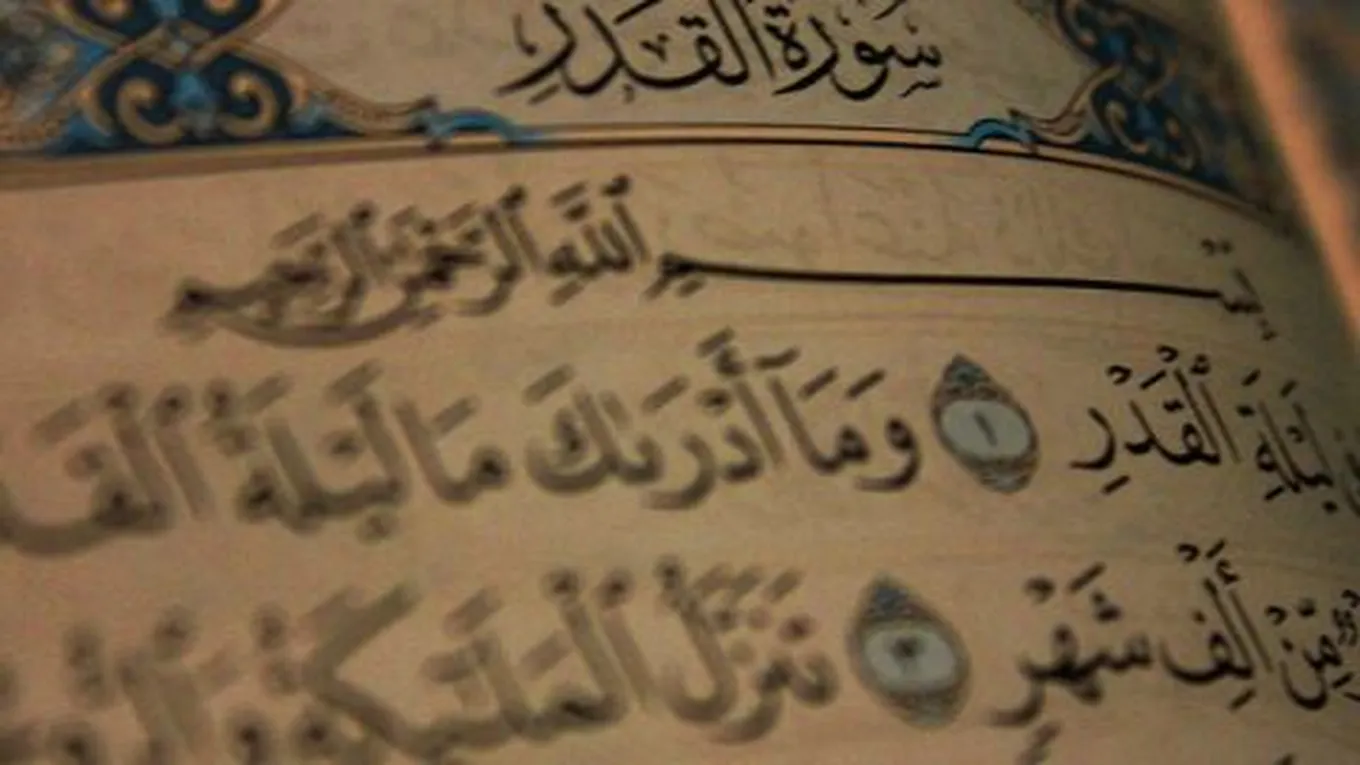 سُورَةُ الْقَدْرِ
بِسْمِ ٱللَّهِ ٱلرَّحْمَٰنِ ٱلرَّحِيمِ
لَيْلَةِ ٱلْقَدْرِ ١ وَمَآ أَدْرَىٰكَ مَا لَيْلَةُ
مِّنْ أَلْفِ شَهْرٍ ٣ تَنَزَّلُ ٱلْمَلَٰٓئِكَةُ وَٱلرُّوحُ